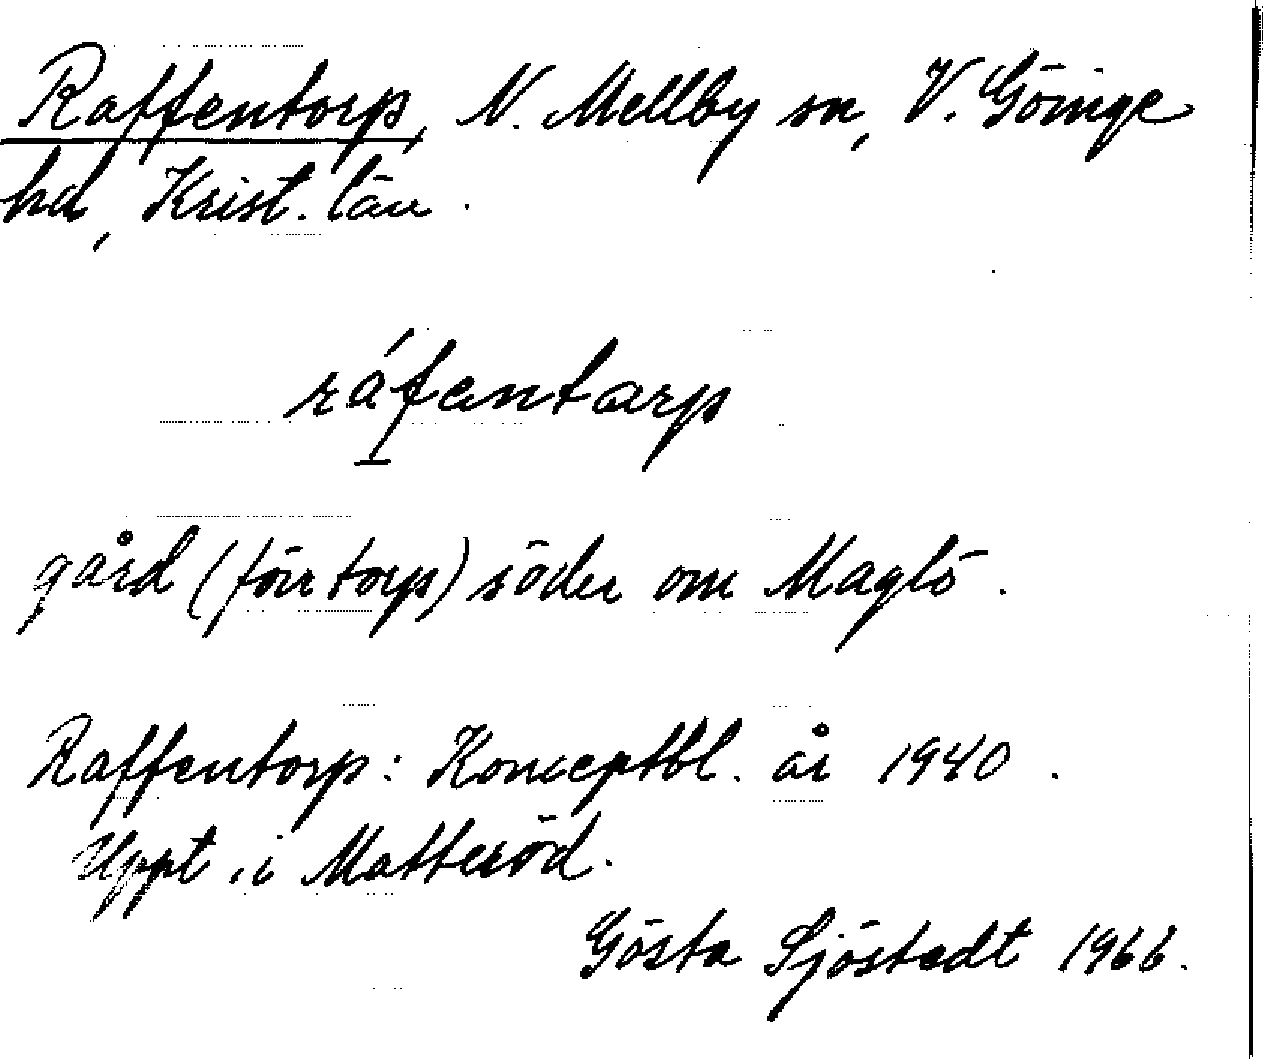 Raffentorp, N. Mellby sn, V. Göinge
hd, Krist. län.
ráfentarp
gård (förr torp) söder om Maglö.
Raffentorp: Konceptbl. år 1940.
Uppt. i Matteröd.
Gösta Sjöstedt 1966.